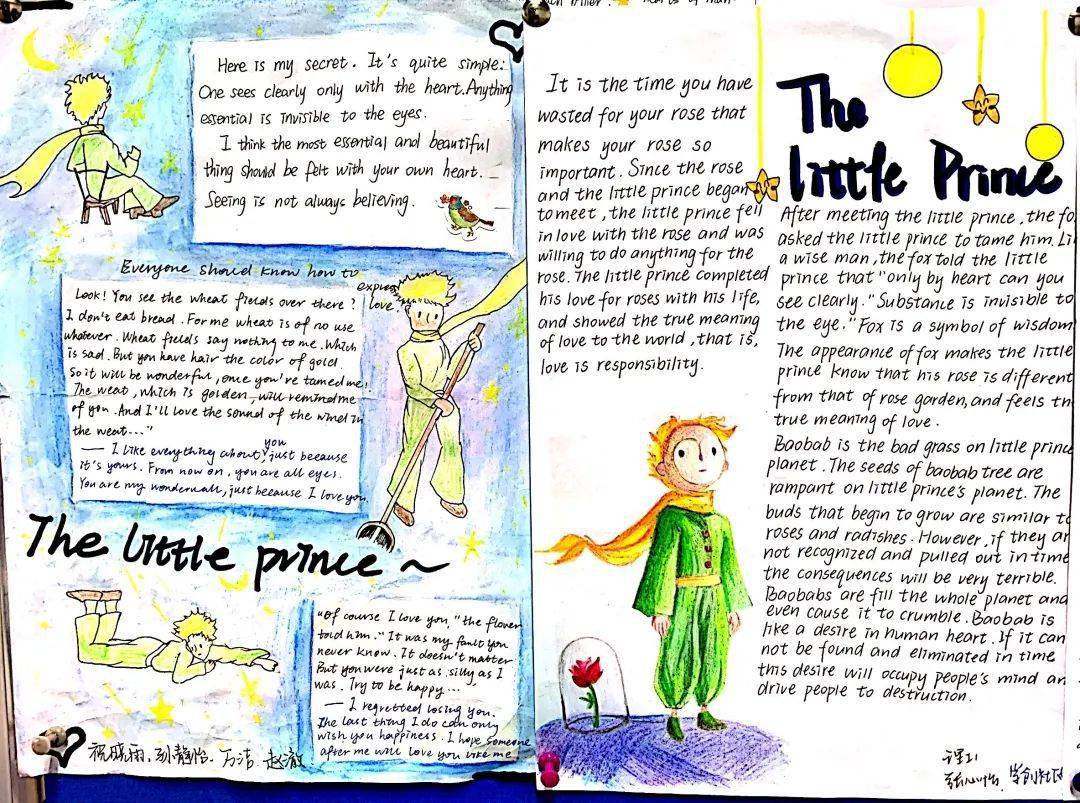 Here is my secret. It's quite simple:
One sees clearly only with the heart. Anything
essential is invisible to the eyes.
I think the most essential and beautiful
thing should be felt with your own heart.
Seeing is not always believing.
Everyone should know how to
express
love.
Look! You see the wheat fields over there?
I don't eat bread. For me wheat is of no use
whatever. Wheat fields say nothing to me. Which
is sad. But you have hair the color of gold.
So it will be wonderful, once you're tamed me!
The weat, which is golden, will remind me
of you. And I'll love the sound of the wind in
the weat..."
— I like everything about you just because
it's yours. From now on, you are all eyes.
You are my wonderwall, just because I love you.
The little prince ~
"Of course I love you," the flover
told him." It was my fault you
never know. It doesn't matter
But you were just as silly as I
was. Try to be happy...
— I regretted losing you.
The last thing I do can only
wish you happiness. I hope someone
after me will love you like me.
祝晓雨. 孙静怡. 万洁. 赵澈
It is the time you have
wasted for your rose that
makes your rose so
important. Since the rose
and the little prince began
to meet, the little prince fell
in love with the rose and was
willing to do anything for the
rose. The little prince completed
his love for roses with his life,
and showed the true meaning
of love to the world, that is,
love is responsibility.
The
little Prince
After meeting the little prince, the fo
asked the little prince to tame him. Li
a wise man, the fox told the little
prince that "only by heart can you
see clearly." Substance is invisible to
the eye." Fox is a symbol of wisdom
The appearance of fox makes the little
prince know that his rose is different
from that of rose garden, and feels th
true meaning of love.
Baobab is the bad grass on little prince
planet. The seeds of baobab tree are
rampant on little prince's planet. The
buds that begin to grow are similar to
roses and radishes. However, if they ar
not recognized and pulled out in time
the consequences will be very terrible.
Baobabs are fill the whole planet and
even cause it to crumble. Baobab is
like a desire in human heart. If it can
not be found and eliminated in time
this desire will occupy people's mind an
drive people to destruction.